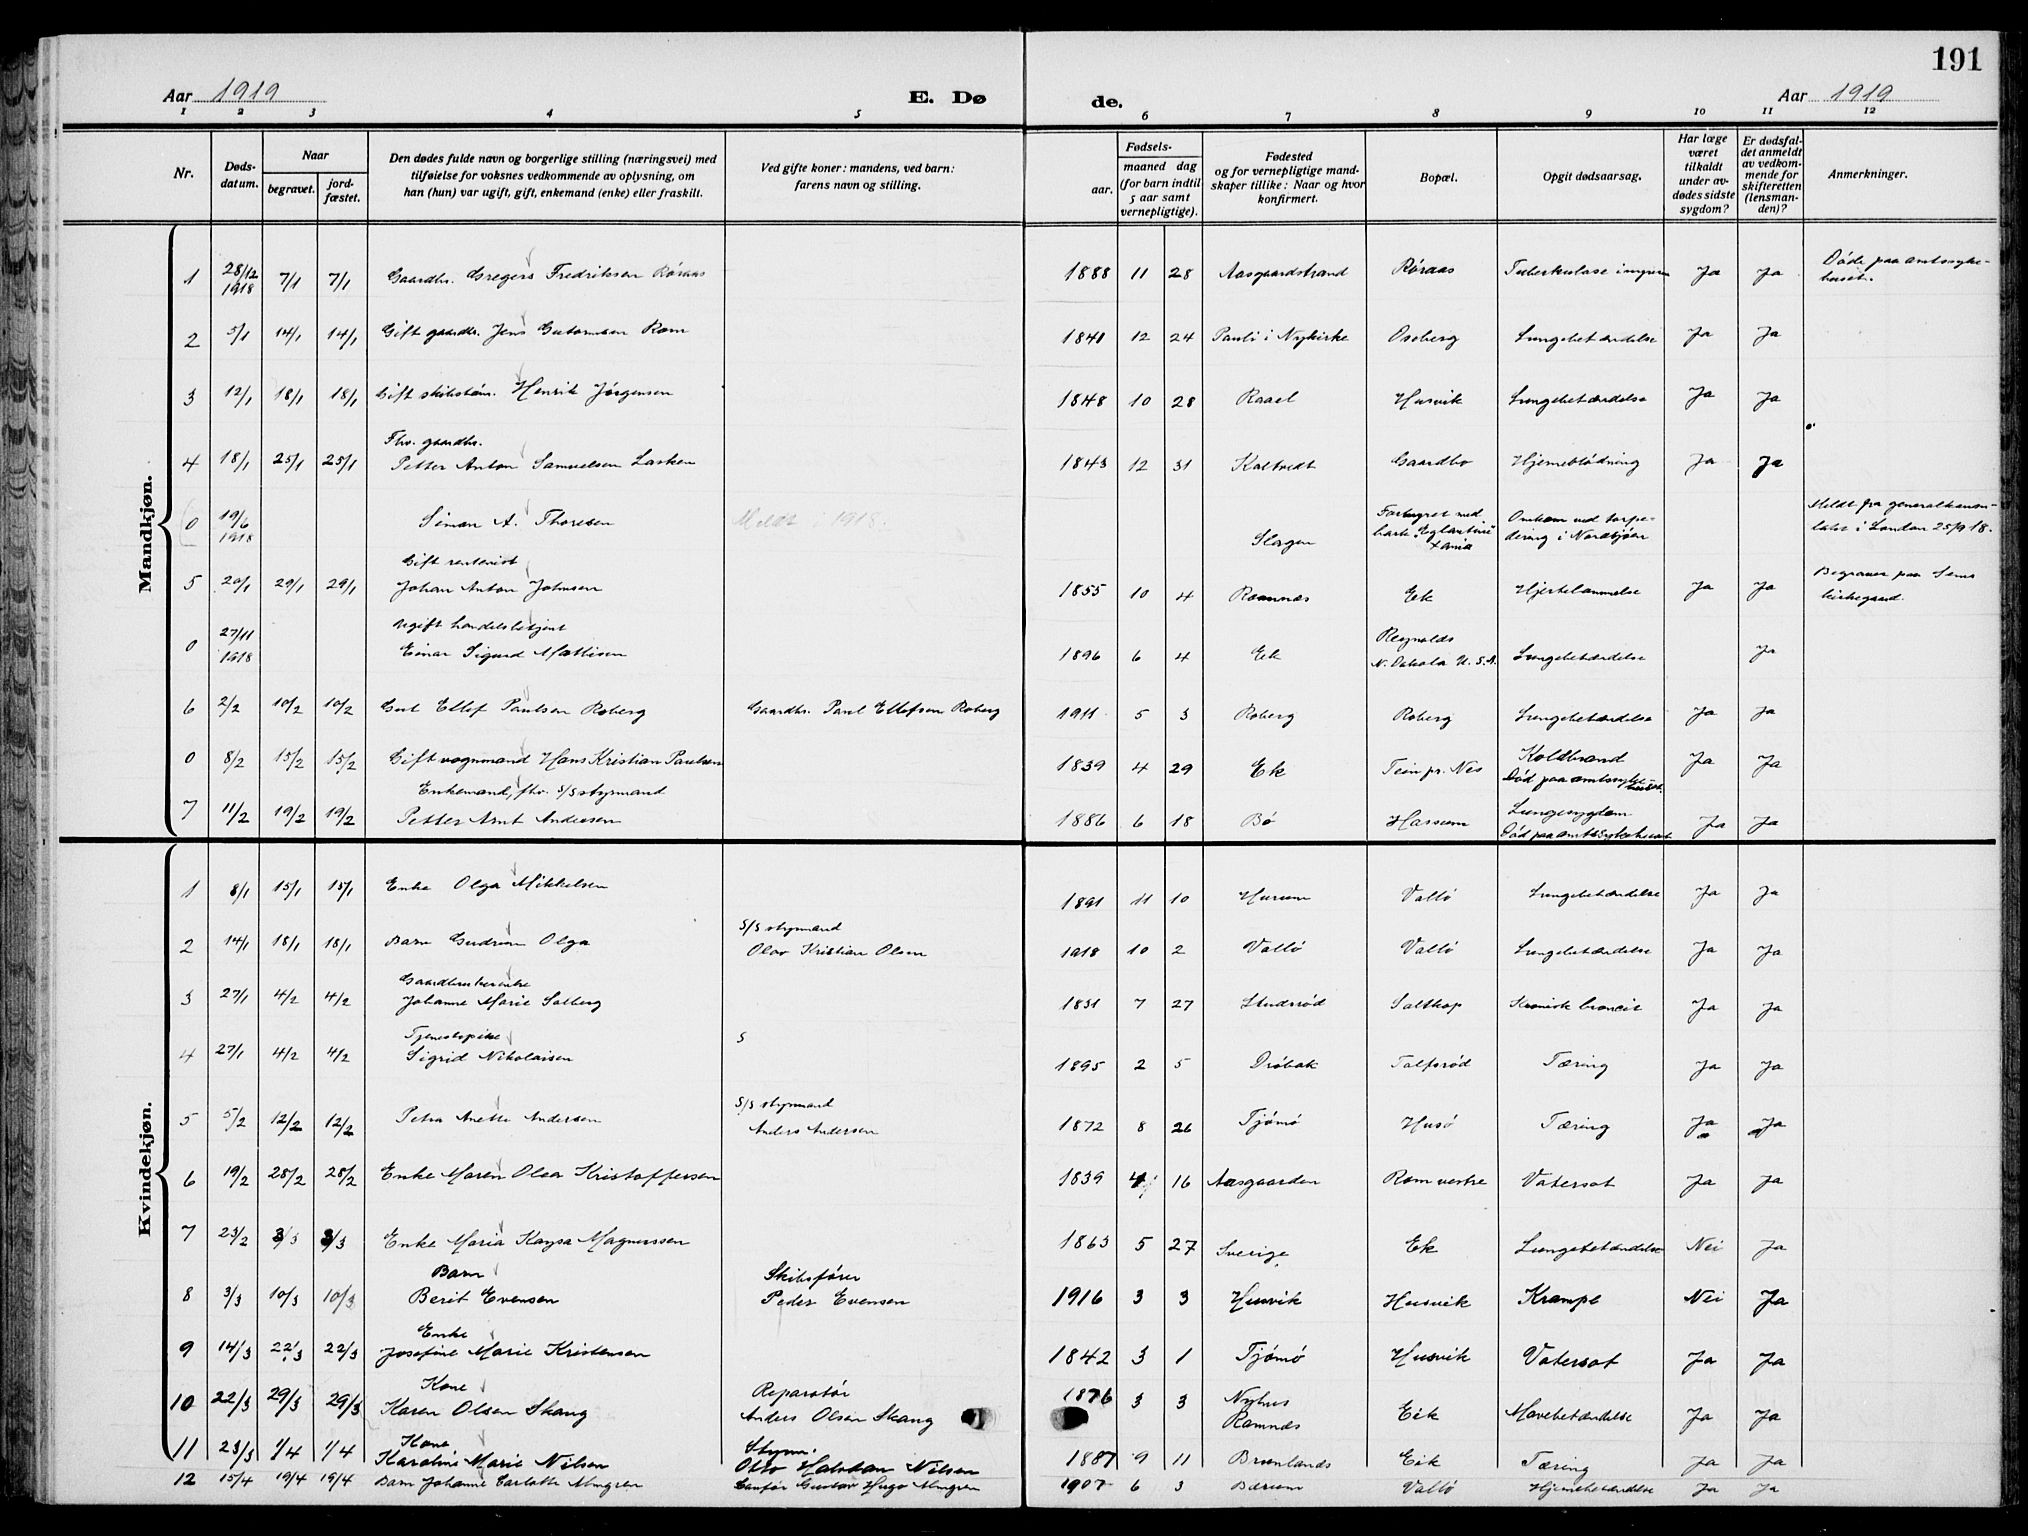 191
Aar 1919 E. Dø de. Aar 1919
1 2 3 4 5 6 7 8 9 10 11 12
Nr. Dødsdatum. Naar begravet. jordfæstet. Den dødes fulde navn og borgerlige stilling (næringsvei) med tilføielse for voksnes vedkommende av oplysning, om han (hun) var ugift, gift, enkemand (enke) eller fraskilt. Ved gifte koner: mandens, ved barn: farens navn og stilling. Fødsels- aar. maaned dag (for barn indtil 5 aar samt vernepligtige). Fødested og for vernepligtige mandskaper tillike: Naar og hvor konfirmert. Bopæl. Opgit dødsaarsag. Har læge været tilkaldt under avdødes sidste sygdom? Er dødsfaldet anmeldt av vedkommende for skifteretten (lensmanden)? Anmerkninger.
Mandkjøn.
1 28/12 1918 7/1 7/1 Gaardbr. Gregers Fredriksen Røraas 1888 11 28 Aasgaardstrand Røraas Tuberkulose Ja Ja Døde paa amtssykehuset.
2 5/1 14/1 14/1 Gift gaardbr. Jens Guttormsen Rom 1841 12 24 Pauli i Nykirke Oseberg Lungebetændelse Ja Ja
3 12/1 18/1 18/1 Gift skibstøm. Henrik Jørgensen 1848 10 28 Raael Husvik Lungebetændelse Ja Ja
4 18/1 25/1 25/1 Fhv. gaardbr. Petter Anton Samuelsen Lasken 1843 12 31 Gaardbo Hjerneblødning Ja Ja
0 19/6 1918 Simon A. Thoresen Meldt i 1918. Slagen Omkom ved torpedering i Nordsjøen Meldt fra generalkonsulatet i London 25/9 18.
5 20/1 29/1 29/1 Gift rentenist Johan Anton Johnsen 1855 10 4 Ramnæs Eek Hjertelammelse Ja Ja Begraves paa Sems kirkegaard.
0 27/11 1918 Ugift handelsbetjent Einar Sigurd Mattisen 1896 6 4 Eek Reynolds N. Dakota U.S.A. Lungebetændelse Ja
6 2/2 10/2 10/2 Gut Ellef Paulsen Roberg Gaardbr. Paul Ellefsen Roberg 1911 5 3 Roberg Roberg Lungebetændelse Ja Ja
0 8/2 15/2 15/2 Gift vognmand Hans Kristian Paulsen 1839 4 29 Ek Tein pr. Nes Koldbrand Død paa amtssykehuset. Ja Ja
7 11/2 19/2 19/2 Enkemand, fhv. S/S styrmand Petter Arnt Andersen 1886 6 18 Bø Hassum Lungesygdom Død paa amtssykehuset Ja Ja
Kvindekjøn.
1 8/1 15/1 15/1 Enke Olga Mikkelsen 1891 11 10 Hurum Vallø Lungebetændelse Ja Ja
2 14/1 18/1 18/1 Barn Gudrun Olga S/S styrmand Olav Kristian Olsen 1918 10 2 Vallø Vallø Lungebetændelse Ja Ja
3 27/1 4/2 4/2 Gaardbrukerenke Johanne Marie Solberg 1831 7 27 Studsrød Saltkop Kronisk broncit Ja Ja
4 27/1 4/2 4/2 Tjenestepike Sigrid Nikolaisen S 1895 2 5 Drøbak Tolfsrød Tæring Ja Ja
5 5/2 12/2 12/2 Petra Anette Andersen S/S styrmand Anders Andersen 1872 8 26 Tjømø Husø Tæring Ja Ja
6 19/2 28/2 28/2 Enke Maren Olea Kristoffersen 1839 4 16 Aasgaarden Rom vestre Vatersot Ja Ja
7 23/2 3/3 3/3 Enke Maria Kaysa Magnussen 1863 5 27 Sverige Ek Lungebetændelse Nei Ja
8 3/3 10/3 10/3 Barn Berit Evensen Skibsfører Peder Evensen 1916 3 3 Husvik Husvik Krampe Nei Ja
9 14/3 22/3 22/3 Enke Josefine Marie Kristensen 1842 3 1 Tjømø Husvik Vatersot Ja Ja
10 22/3 29/3 29/3 Kone Karen Olsen Skaug Reparatør Anders Olsen Skaug 1876 3 3 Nyhus Ramnæs Eik Mavebetændelse Ja Ja
11 23/3 1/4 1/4 Kone Karoline Marie Nilsen Styrm. Otto Halvdan Nilsen 1887 9 11 Brunlands Eik Tæring Ja Ja
12 15/4 19/4 19/4 Barn Johanne Carlotte Almgren Gustav Hugo Almgren 1907 6 3 Bærum Vallø Hjernebetændelse Ja Ja